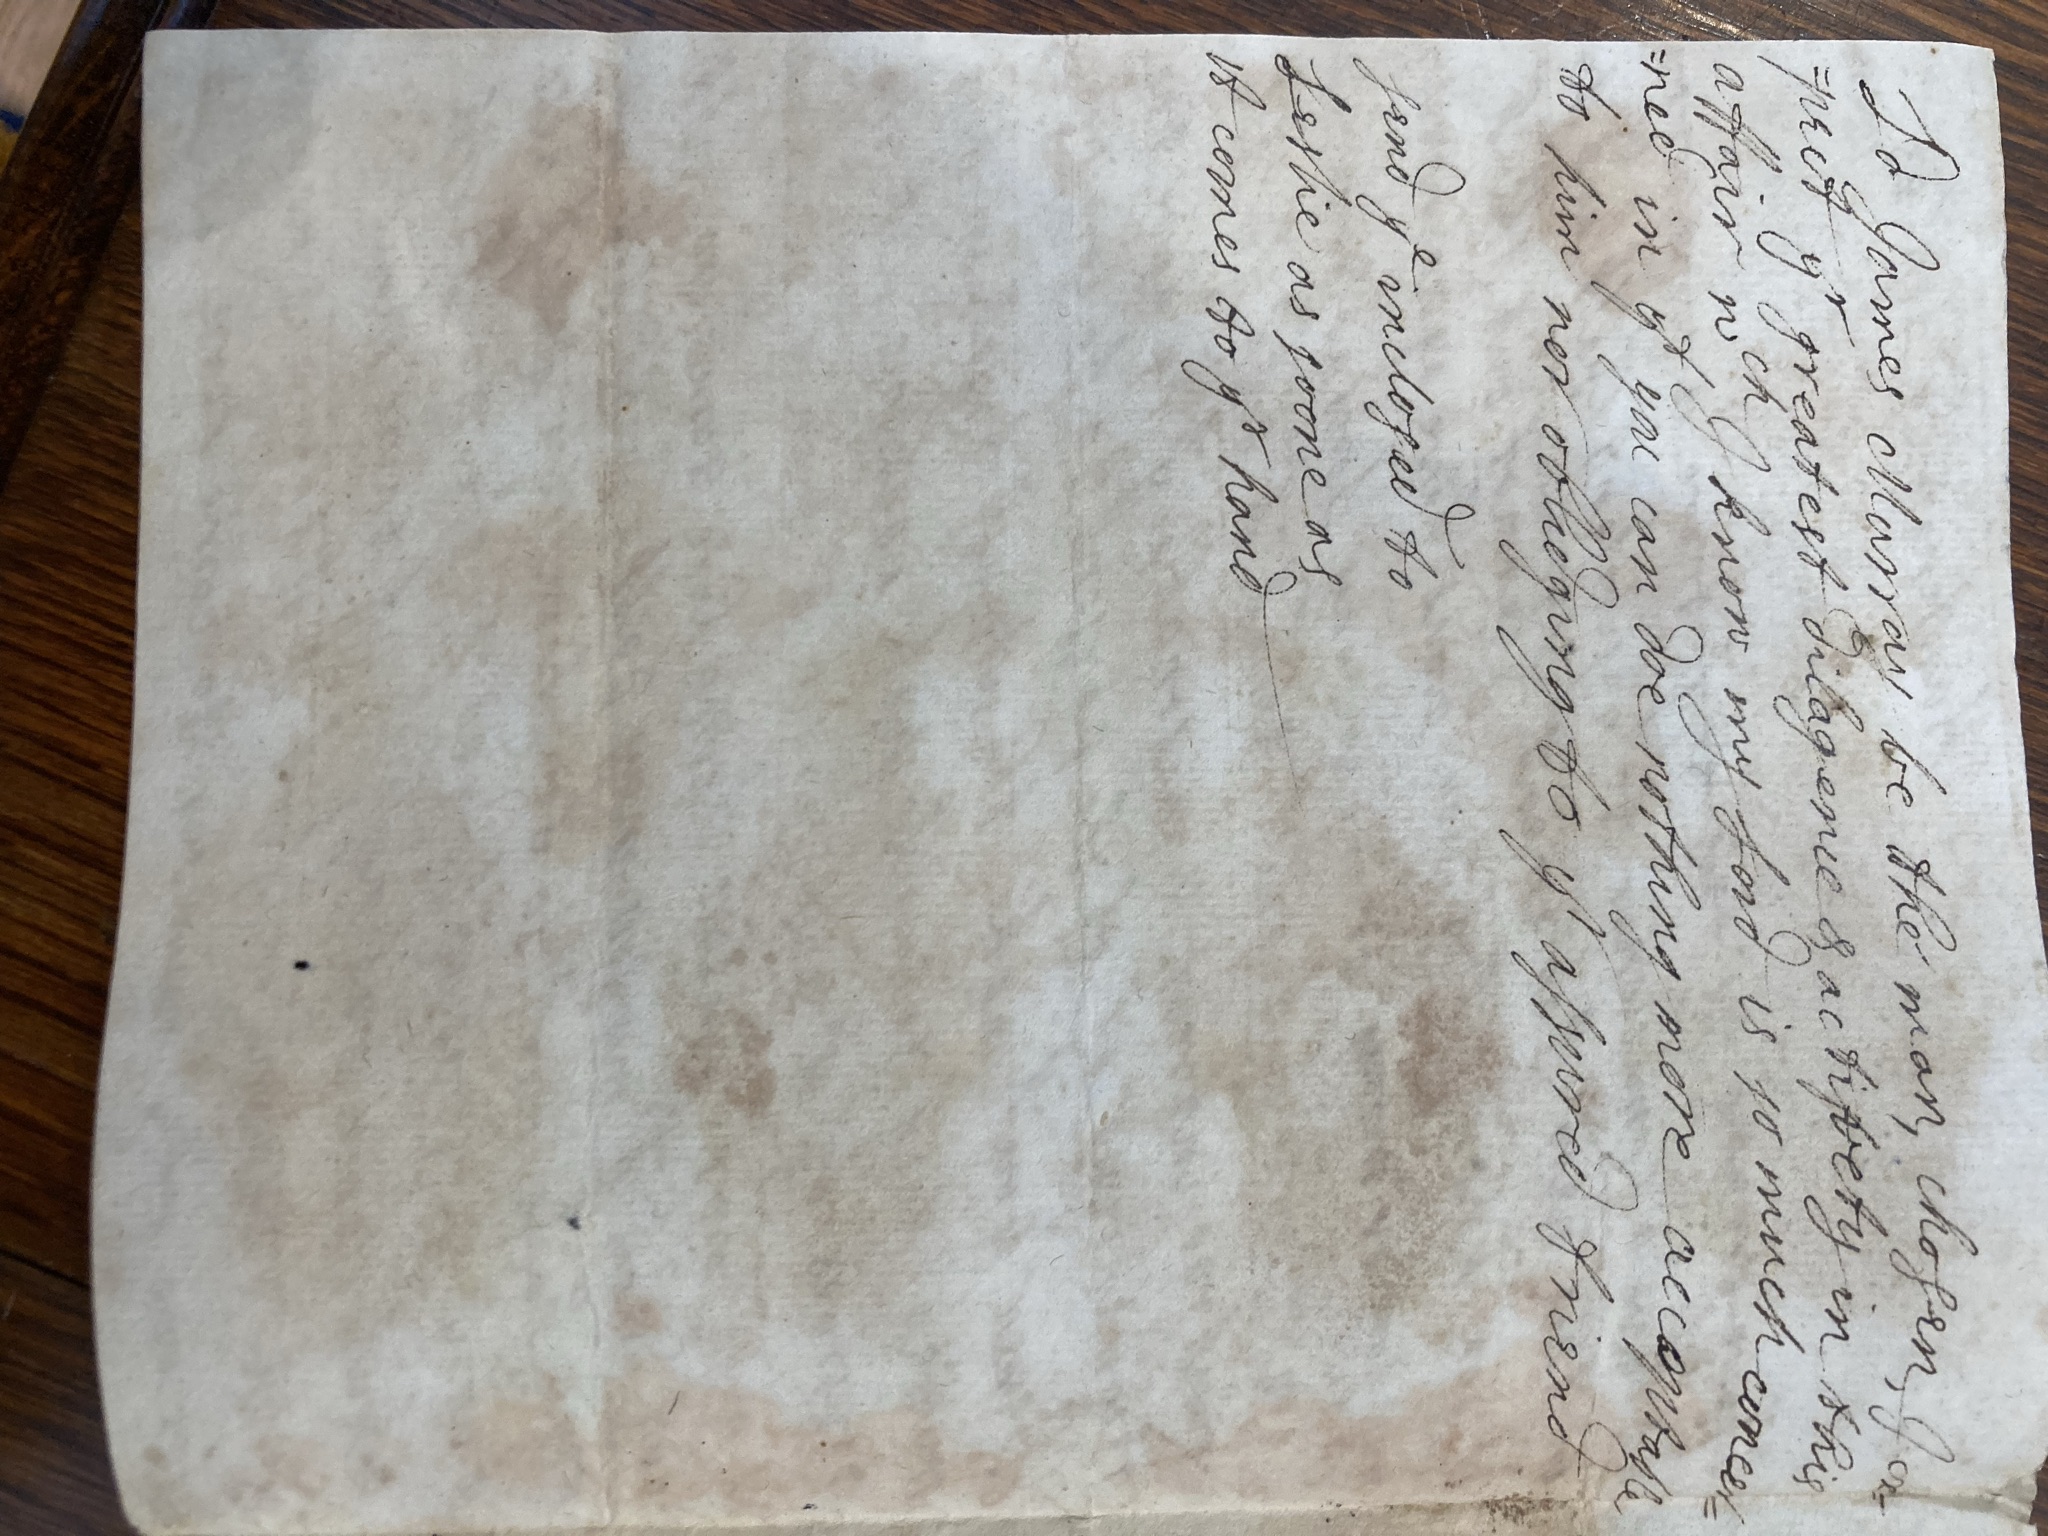 Ld James Murray be the man, chosen, I ex=
=pect yr greatest dilagence & activety in this
affair wch I know my Lord is so much concer=
=ned in yt you can doe nothing more acceptable
to him nor obliedging to yr assured friend
send ye inclosed to
Leslie as soone as
it comes to yr hand